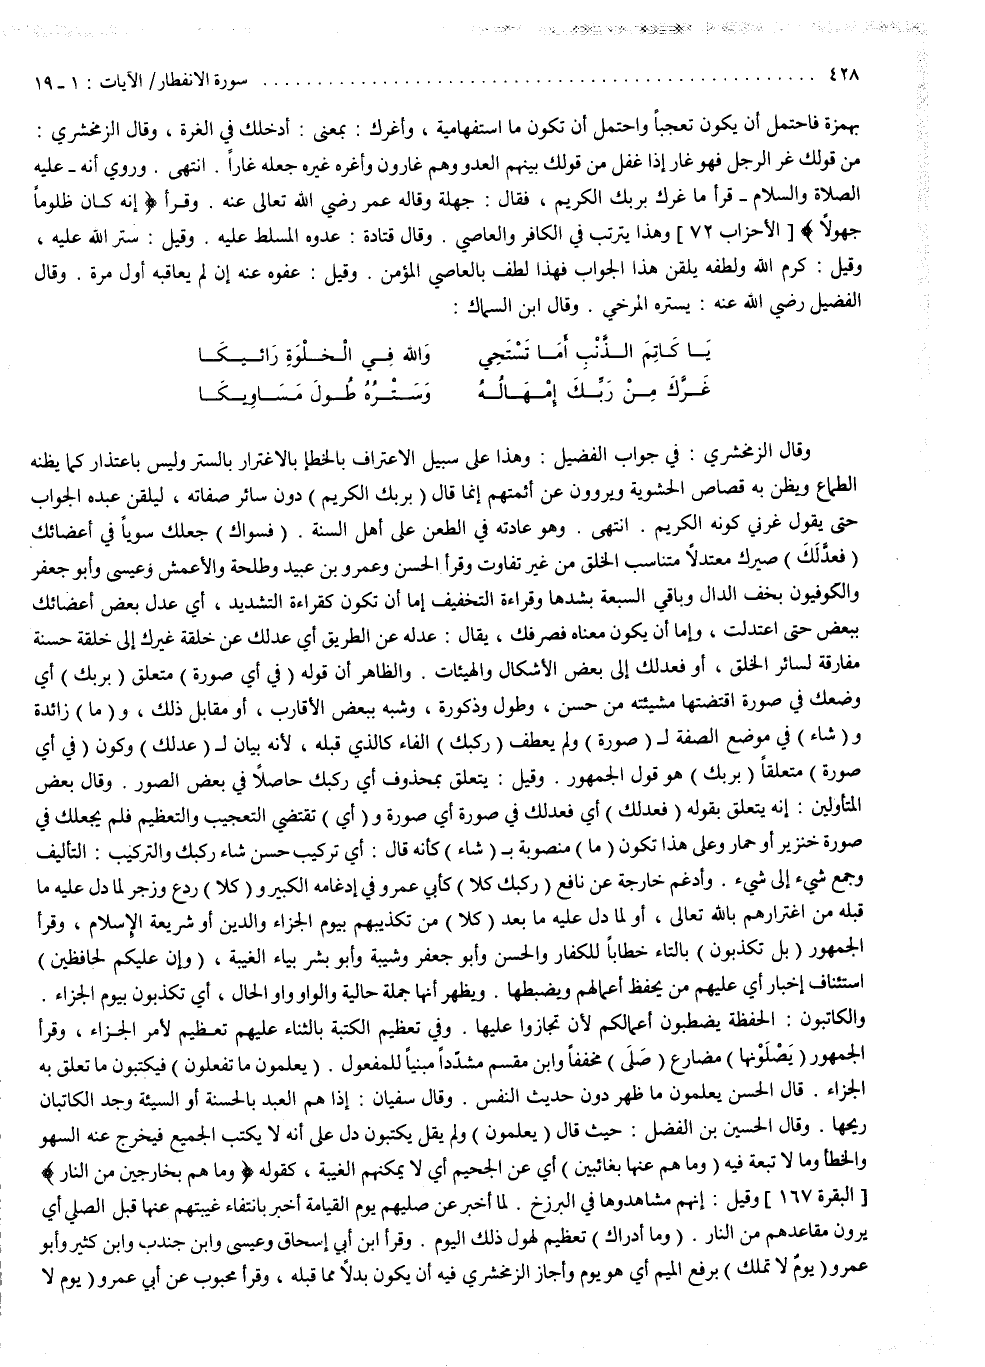 ٤٢٨ .......................................... سورة الانفطار/ الآيات : ١ ـ ١٩
بهمزة فاحتمل أن يكون تعجباً واحتمل أن تكون ما استفهامية ، وأغرك : بمعنى : أدخلك في الغرة ، وقال الزمخشري :
من قولك غر الرجل فهو غار إذا غفل من قولك بينهم العدو وهم غارون وأغره غيره جعله غاراً . انتهى . وروي أنه ـ عليه
الصلاة والسلام ـ قرأ ما غرك بربك الكريم ، فقال : جهلة وقاله عمر رضي الله تعالى عنه . وقرأ ﴿ إنه كان ظلوماً
جهولاً ﴾ [ الأحزاب ٧٢ ] وهذا يترتب في الكافر والعاصي . وقال قتادة : عدوه المسلط عليه . وقيل : ستر الله عليه ،
وقيل : كرم الله ولطفه يلقن هذا الجواب فهذا لطف بالعاصي المؤمن . وقيل : عفوه عنه إن لم يعاقبه أول مرة . وقال
الفضيل رضي الله عنه : يستره المرخي . وقال ابن السماك :
يَا كَاتِمَ الذَّنْبِ أَمَا تَسْتَحِي وَالله فِي الْخَلْوَةِ رَائِيكَا
غَرَّكَ مِنْ رَبِّكَ إِمْهَالُهُ وَسَتْرُهُ طُولَ مَسَاوِيكَا
وقال الزمخشري : في جواب الفضيل : وهذا على سبيل الاعتراف بالخطإ بالاغترار بالستر وليس باعتذار كما يظنه
الطماع ويظن به قصاص الحشوية ويروون عن أئمتهم إنما قال ( بربك الكريم ) دون سائر صفاته ، ليلقن عبده الجواب
حتى يقول غرني كونه الكريم . انتهى . وهو عادته في الطعن على أهل السنة . ( فسواك ) جعلك سوياً في أعضائك
( فعدَّلَكَ ) صيرك معتدلاً متناسب الخلق من غير تفاوت وقرأ الحسن وعمرو بن عبيد وطلحة والأعمش وعيسى وأبو جعفر
والكوفيون بخف الدال وباقي السبعة بشدها وقراءة التخفيف إما أن تكون كقراءة التشديد ، أي عدل بعض أعضائك
ببعض حتى اعتدلت ، وإما أن يكون معناه فصرفك ، يقال : عدله عن الطريق أي عدلك عن خلقة غيرك إلى خلقة حسنة
مفارقة لسائر الخلق ، أو فعدلك إلى بعض الأشكال والهيئات . والظاهر أن قوله ( في أي صورة ) متعلق ( بربك ) أي
وضعك في صورة اقتضتها مشيئته من حسن ، وطول وذكورة ، وشبه ببعض الأقارب ، أو مقابل ذلك ، و ( ما ) زائدة
و ( شاء ) في موضع الصفة لـ ( صورة ) ولم يعطف ( ركبك ) الفاء كالذي قبله ، لأنه بيان لـ ( عدلك ) وكون ( في أي
صورة ) متعلقاً ( بربك ) هو قول الجمهور . وقيل : يتعلق بمحذوف أي ركبك حاصلاً في بعض الصور . وقال بعض
المتأولين : إنه يتعلق بقوله ( فعدلك ) أي فعدلك في صورة أي صورة و ( أي ) تقتضي التعجيب والتعظيم فلم يجعلك في
صورة خنزير أو حمار وعلى هذا تكون ( ما ) منصوبة بـ ( شاء ) كأنه قال : أي تركيب حسن شاء ركبك والتركيب : التأليف
وجمع شيء إلى شيء . وأدغم خارجة عن نافع ( ركبك كلا ) كأبي عمرو في إدغامه الكبير و ( كلا ) ردع وزجر لما دل عليه ما
قبله من اغترارهم بالله تعالى ، أو لما دل عليه ما بعد ( كلا ) من تكذيبهم بيوم الجزاء والدين أو شريعة الإسلام ، وقرأ
الجمهور ( بل تكذبون ) بالتاء خطاباً للكفار والحسن وأبو جعفر وشيبة وأبو بشر بياء الغيبة ، ( وإن عليكم لحافظين )
استئناف إخبار أي عليهم من يحفظ أعمالهم ويضبطها . ويظهر أنها جملة حالية والواو واو الحال ، أي تكذبون بيوم الجزاء .
والكاتبون : الحفظة يضبطون أعمالكم لأن تجازوا عليها . وفي تعظيم الكتبة بالثناء عليهم تعظيم لأمر الجزاء ، وقرأ
الجمهور ( يَصْلَوْنها ) مضارع ( صَلَى ) مخففاً وابن مقسم مشدّداً مبنياً للمفعول . ( يعلمون ما تفعلون ) فيكتبون ما تعلق به
الجزاء . قال الحسن يعلمون ما ظهر دون حديث النفس . وقال سفيان : إذا هم العبد بالحسنة أو السيئة وجد الكاتبان
ريحها . وقال الحسين بن الفضل : حيث قال ( يعلمون ) ولم يقل يكتبون دل على أنه لا يكتب الجميع فيخرج عنه السهو
والخطأ وما لا تبعة فيه ( وما هم عنها بغائبين ) أي عن الجحيم أي لا يمكنهم الغيبة ، كقوله ﴿ وما هم بخارجين من النار ﴾
[ البقرة ١٦٧ ] وقيل : إنهم مشاهدوها في البرزخ . لما أخبر عن صليهم يوم القيامة أخبر بانتفاء غيبتهم عنها قبل الصلي أي
يرون مقاعدهم من النار . ( وما أدراك ) تعظيم لهول ذلك اليوم . وقرأ ابن أبي إسحاق وعيسى وابن جندب وابن كثير وأبو
عمرو ( يومُ لا تملك ) برفع الميم أي هو يوم وأجاز الزمخشري فيه أن يكون بدلاً مما قبله ، وقرأ محبوب عن أبي عمرو ( يوم لا